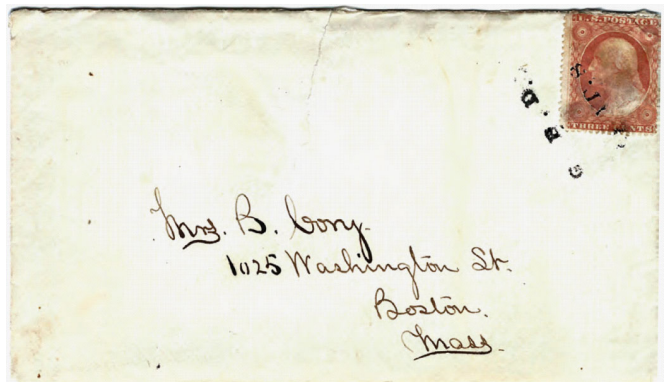 U.S. POSTAGE
THREE CENTS
Mrs. B. Cory.
1025 Washington St.
Boston.
Mass.